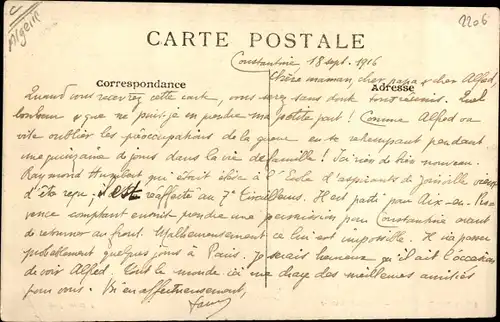 Algérie
2206
CARTE POSTALE
Constantine 18 sept. 1916
Chère maman, cher papa & cher Alfred,
Correspondance
Adresse
Quand vous recevrez cette carte, vous serez sans doute tous réunis. Quel
bonheur & que ne puis-je en prendre ma petite part ! Comme Alfred va
vite oublier les préoccupations de la guerre en se retrempant pendant
une quinzaine de jours dans la vie de famille ! Ici rien de très nouveau.
Raymond Humbert qui était élève à l'École d'aspirants de Joinville vient
d'être reçu, il est réaffecté au 7e Tirailleurs. Il est parti pour Aix-en-Pro-
vence comptant ensuite prendre une permission pour Constantine avant
de retourner au front. Malheureusement ce lui est impossible. Il va passer
probablement quelques jours à Paris. Je serais heureux qu'il ait l'occasion
de voir Alfred. Tout le monde ici me charge des meilleures amitiés
pour vous. Bien affectueusement,